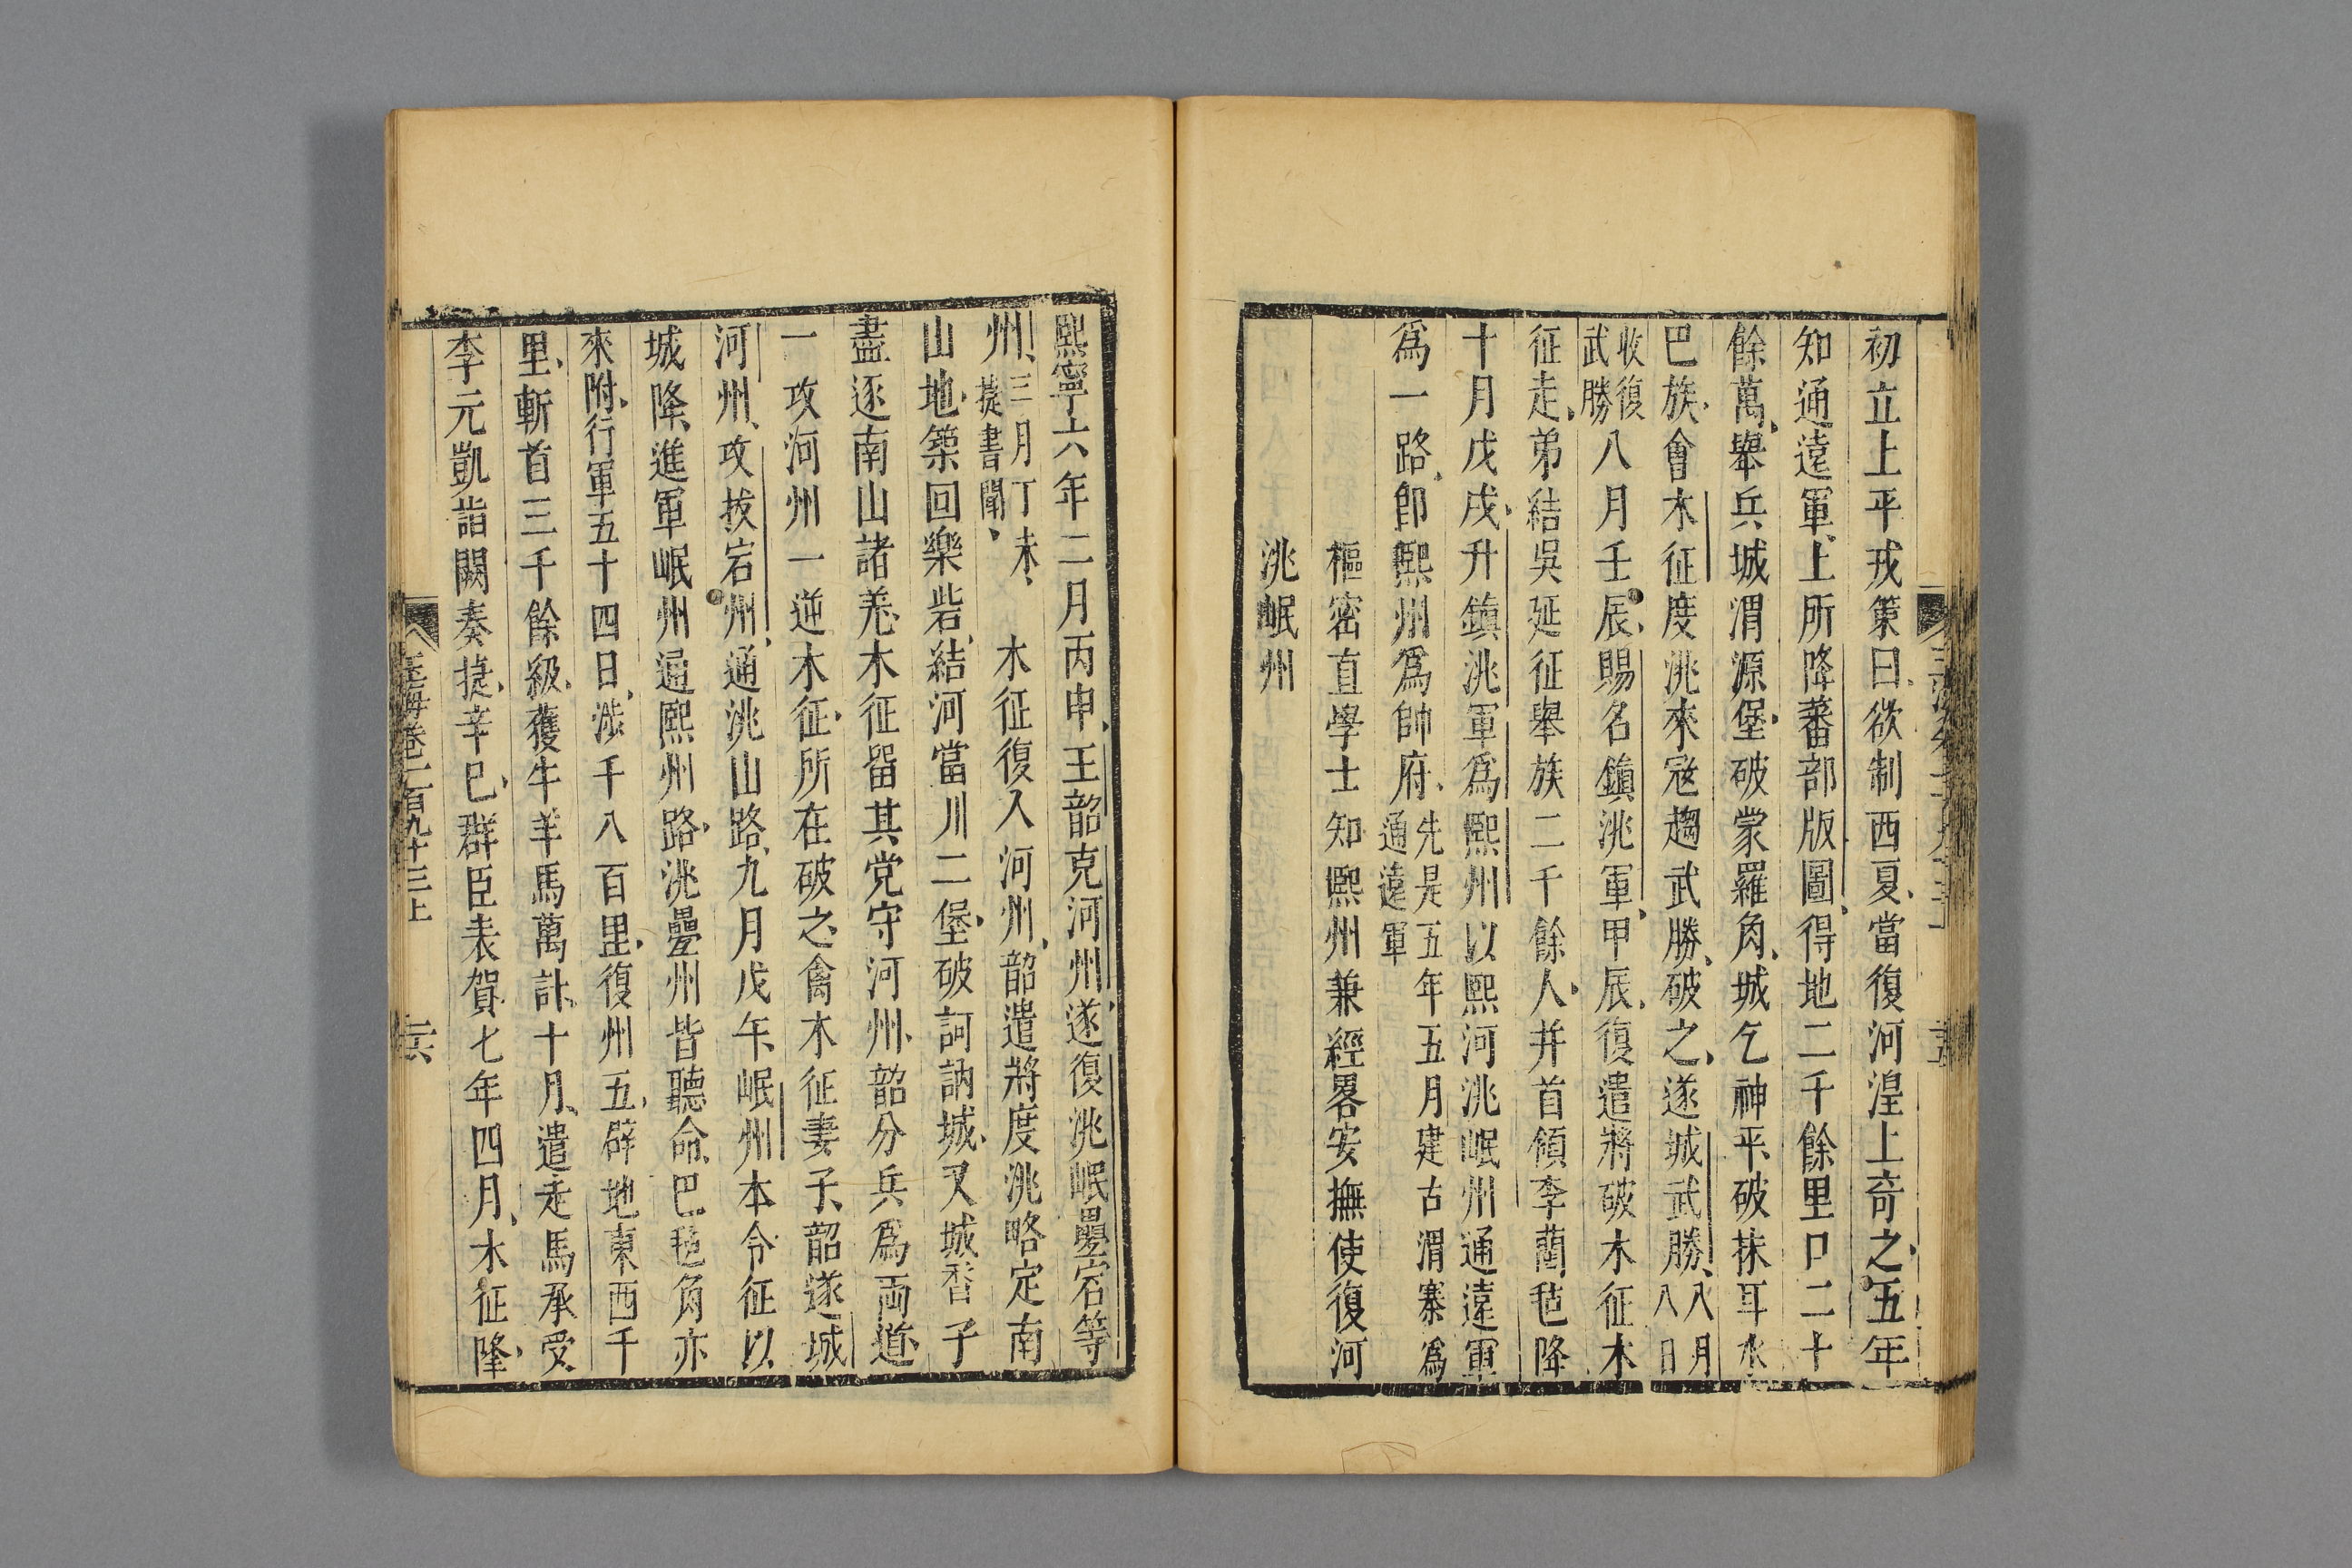 初立上平戎策曰欲制西夏當復河湟上奇之五年
知通遠軍上所降蕃部版圖得地二千餘里口二十
餘萬舉兵城渭源堡破蒙羅角城乞神平破抹耳水
巴族會木征度洮來寇趨武勝破之遂城武勝八月八日
收復武勝八月壬辰賜名鎮洮軍甲辰復遣將破木征木
征走弟結吳延征舉族二千餘人并首領李藺氊降
十月戊戌升鎮洮軍爲熈州以熈河洮岷州通遠軍
爲一路卽熈州爲帥府先是五年五月建古渭寨爲通遠軍
樞密直學士知熈州兼經畧安撫使復河
洮岷州
熈寧六年二月丙申王韶克河州遂復洮岷疊宕等
州三月丁未捷書聞木征復入河州韶遣將度洮略定南
山地築回樂砦結河當川二堡破訶訥城又城香子
盡逐南山諸羌木征留其党守河州韶分兵爲兩道
一攻河州一逆木征所在破之禽木征妻子韶遂城
河州攻拔宕州通洮山路九月戊午岷州本令征以
城降進軍岷州逼熈州路洮疊州皆聽命巴氊角亦
來附行軍五十四日涉千八百里復州五辟地東西千
里斬首三千餘級獲牛羊馬萬計十月遣走馬承受
李元凱詣闕奏捷辛巳群臣表賀七年四月木征降
玉海卷一百九十三上